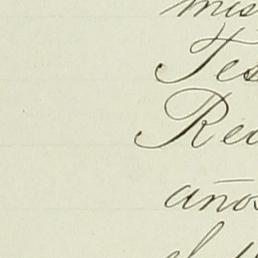 mis
Tes
Rec
años